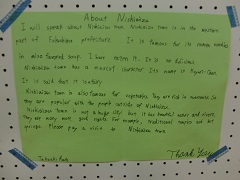 About Nishiaizu
I will speak about Nishiaizu town. Nishiaizu town is in the western
part of Fukushima prefecture. It is famous for its ramen noodles
in miso flavored soup. I have eaten it. It is so delicious.
Nishiaizu town has a mascot character. Its name is
It is said that it is
Nishiaizu town is also famous for vegetables. They are rich in minerals. So
they are popular with the people outside of Nishiaizu.
Nishiaizu town is not a huge city but it has beautiful nature and
They are many good for example, traditional and hot
springs. Please pay a visit to Nishiaizu town.
Thank You